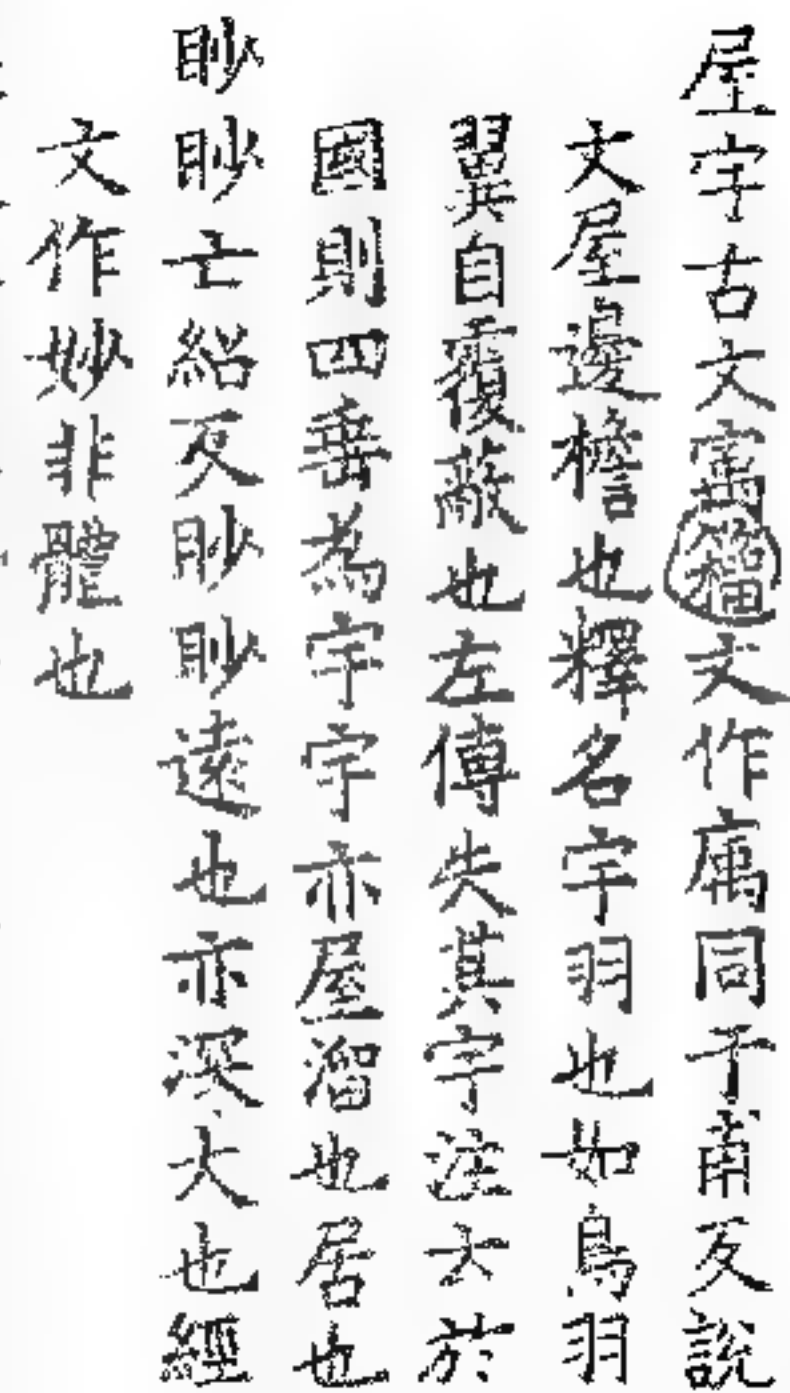 屋宇古文㝢籀文作庽同于甫反說
文屋邊檐也釋名宇羽也如鳥羽
翼自覆蔽也左傳失其宇注云於
國則四垂為宇宇亦屋溜也居也
眇眇亡紹反眇眇遠也亦深大也經
文作妙非體也